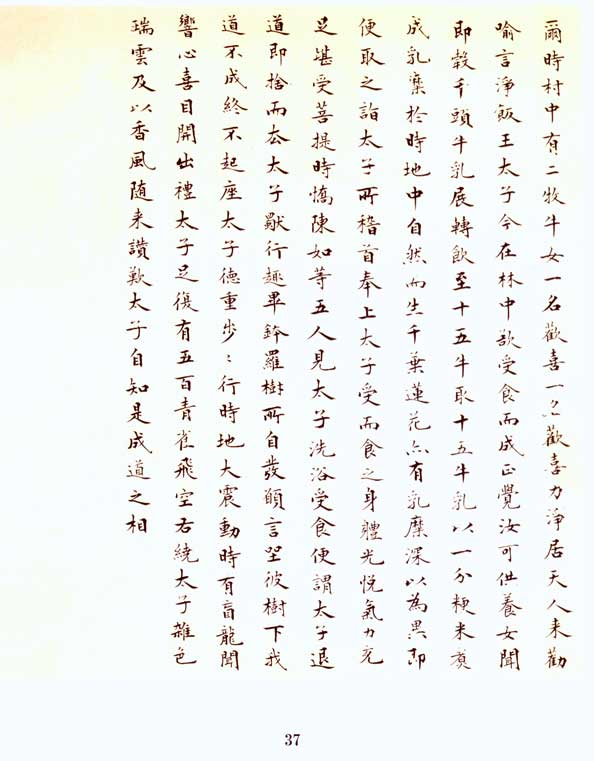 爾時村中有二牧牛女一名歡喜一名歡喜力淨居天人来勸
喻言淨飯王太子今在林中欲受食而成正覺汝可供養女聞
即穀千頭牛乳展轉飲至十五牛取十五牛乳以一分粳米煑
成乳糜於時地中自然而生千葉蓮花亦有乳糜深以為異即
便取之詣太子所稽首奉上太子受而食之身體光悅氣力充
足堪受菩提時憍陳如等五人見太子洗浴受食便謂太子退
道即捨而去太子獨行趣畢鉢羅樹所自發願言坐彼樹下我
道不成終不起座太子德重步〻行時地大震動時有盲龍聞
響心喜目開出禮太子足復有五百青雀飛空右繞太子雜色
瑞雲及以香風随来讚歎太子自知是成道之相
37